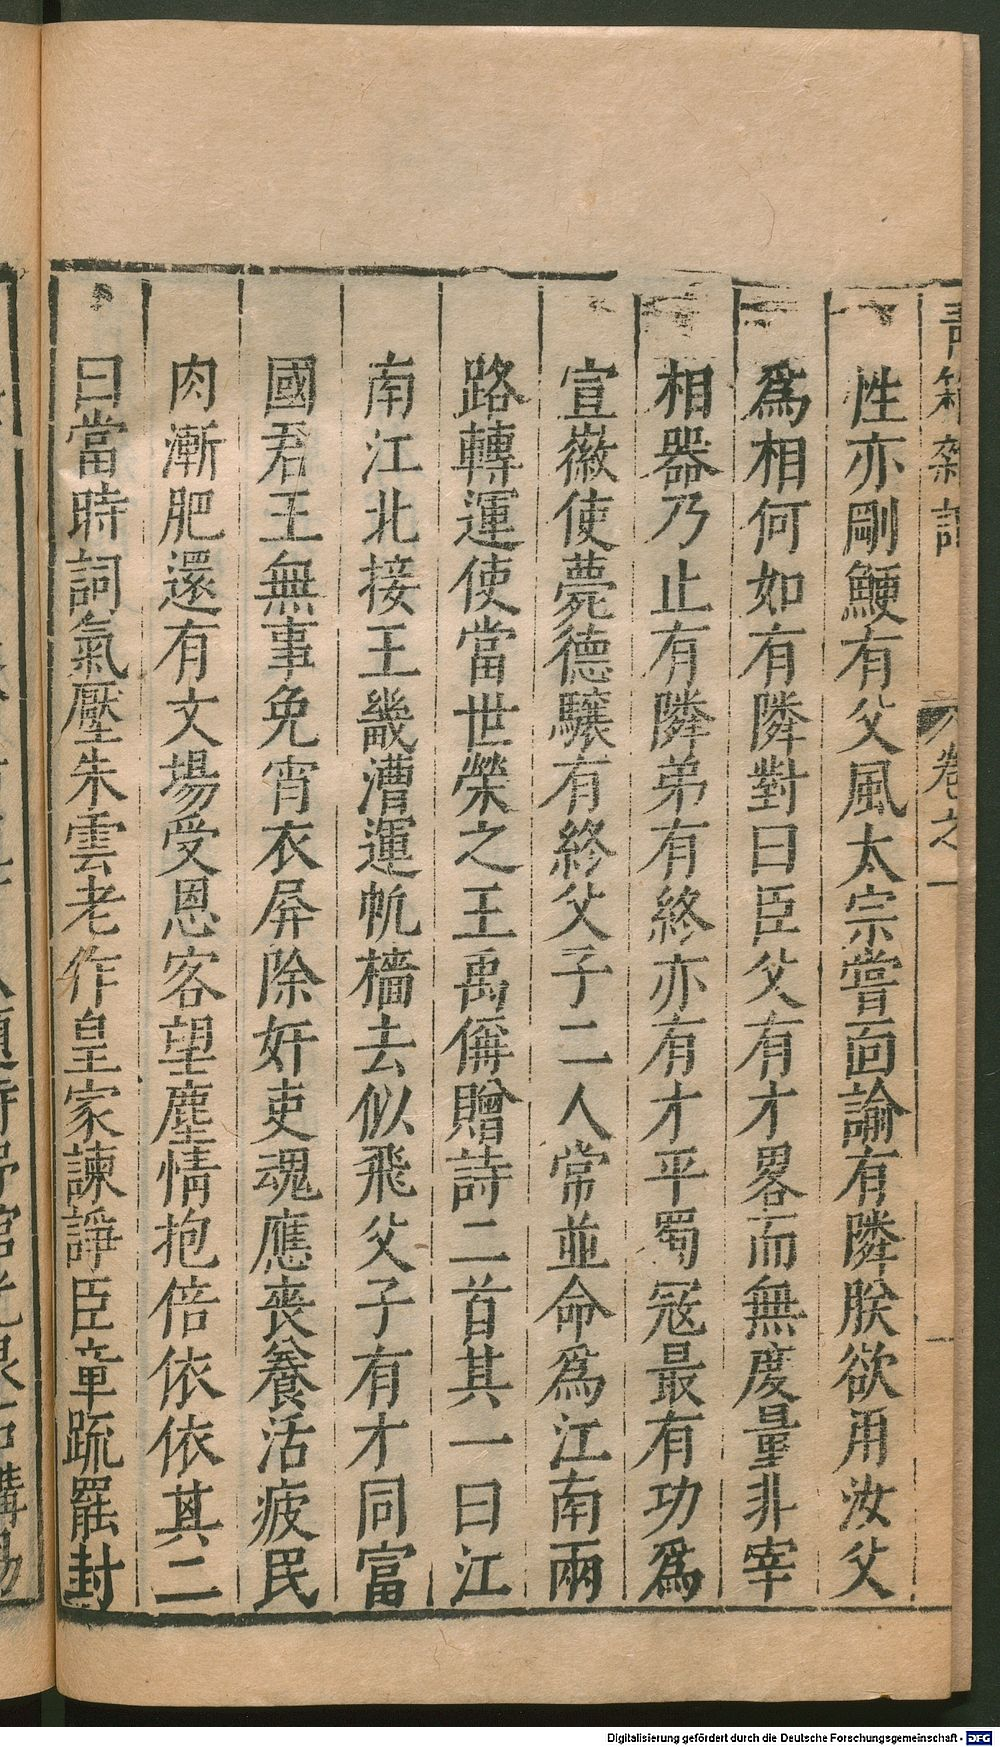 性亦剛鯁有父風太宗嘗面諭有隣朕欲用汝父
爲相何如有隣對曰臣父有才畧而無度量非宰
相器乃止有隣弟有終亦有才平蜀冦最有功爲
宣徽使薨德驤有終父子二人常並命爲江南兩
路轉運使當世榮之王禹偁贈詩二首其一曰江
南江北接王畿漕運帆檣去似飛父子有才同富
國君王無事免宵衣屏除奸吏魂應喪養活疲民
肉漸肥還有文場受恩客望塵情抱倍依依其二
曰當時詞氣壓朱雲老作皇家諫諍臣章疏罷封
卷之一
Digitalisierung gefördert durch die Deutsche Forschungsgemeinschaft - DFG